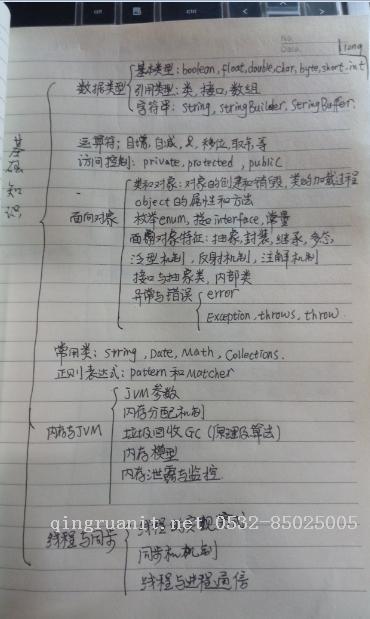 No.
Date.
Liang
基本类型：boolean, float, double, char, byte, short, int
数据类型
引用类型：类，接口，数组
字符串：String, StringBuilder, StringBuffer.
基础知识
运算符；自增，自减，&，移位，取余等
访问控制：private, protected, public
类和对象：对象的创建和销毁，类的加载过程
object的属性和方法
面向对象
枚举enum，接口interface，常量
面向对象特征：抽象，封装，继承，多态，
泛型机制，反射机制，注解机制
接口与抽象类，内部类
异常与错误
error
Exception, throws, throw.
常用类：String, Date, Math, Collections.
正则表达式：pattern和Matcher
JVM参数
内存分配机制
内存与JVM
垃圾回收GC（原理及算法）
内存模型
内存泄露与监控
qingruanit.net 0532-85025005
线程与同步
同步和机制
线程与进程通信